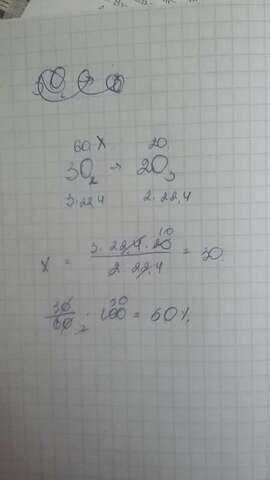 60 x 20
3O₂ → 2O₃
3·22,4 2·22,4
x = 3·22,4·20 10 / 2·22,4 = 30
30/60 · 100 = 50%.